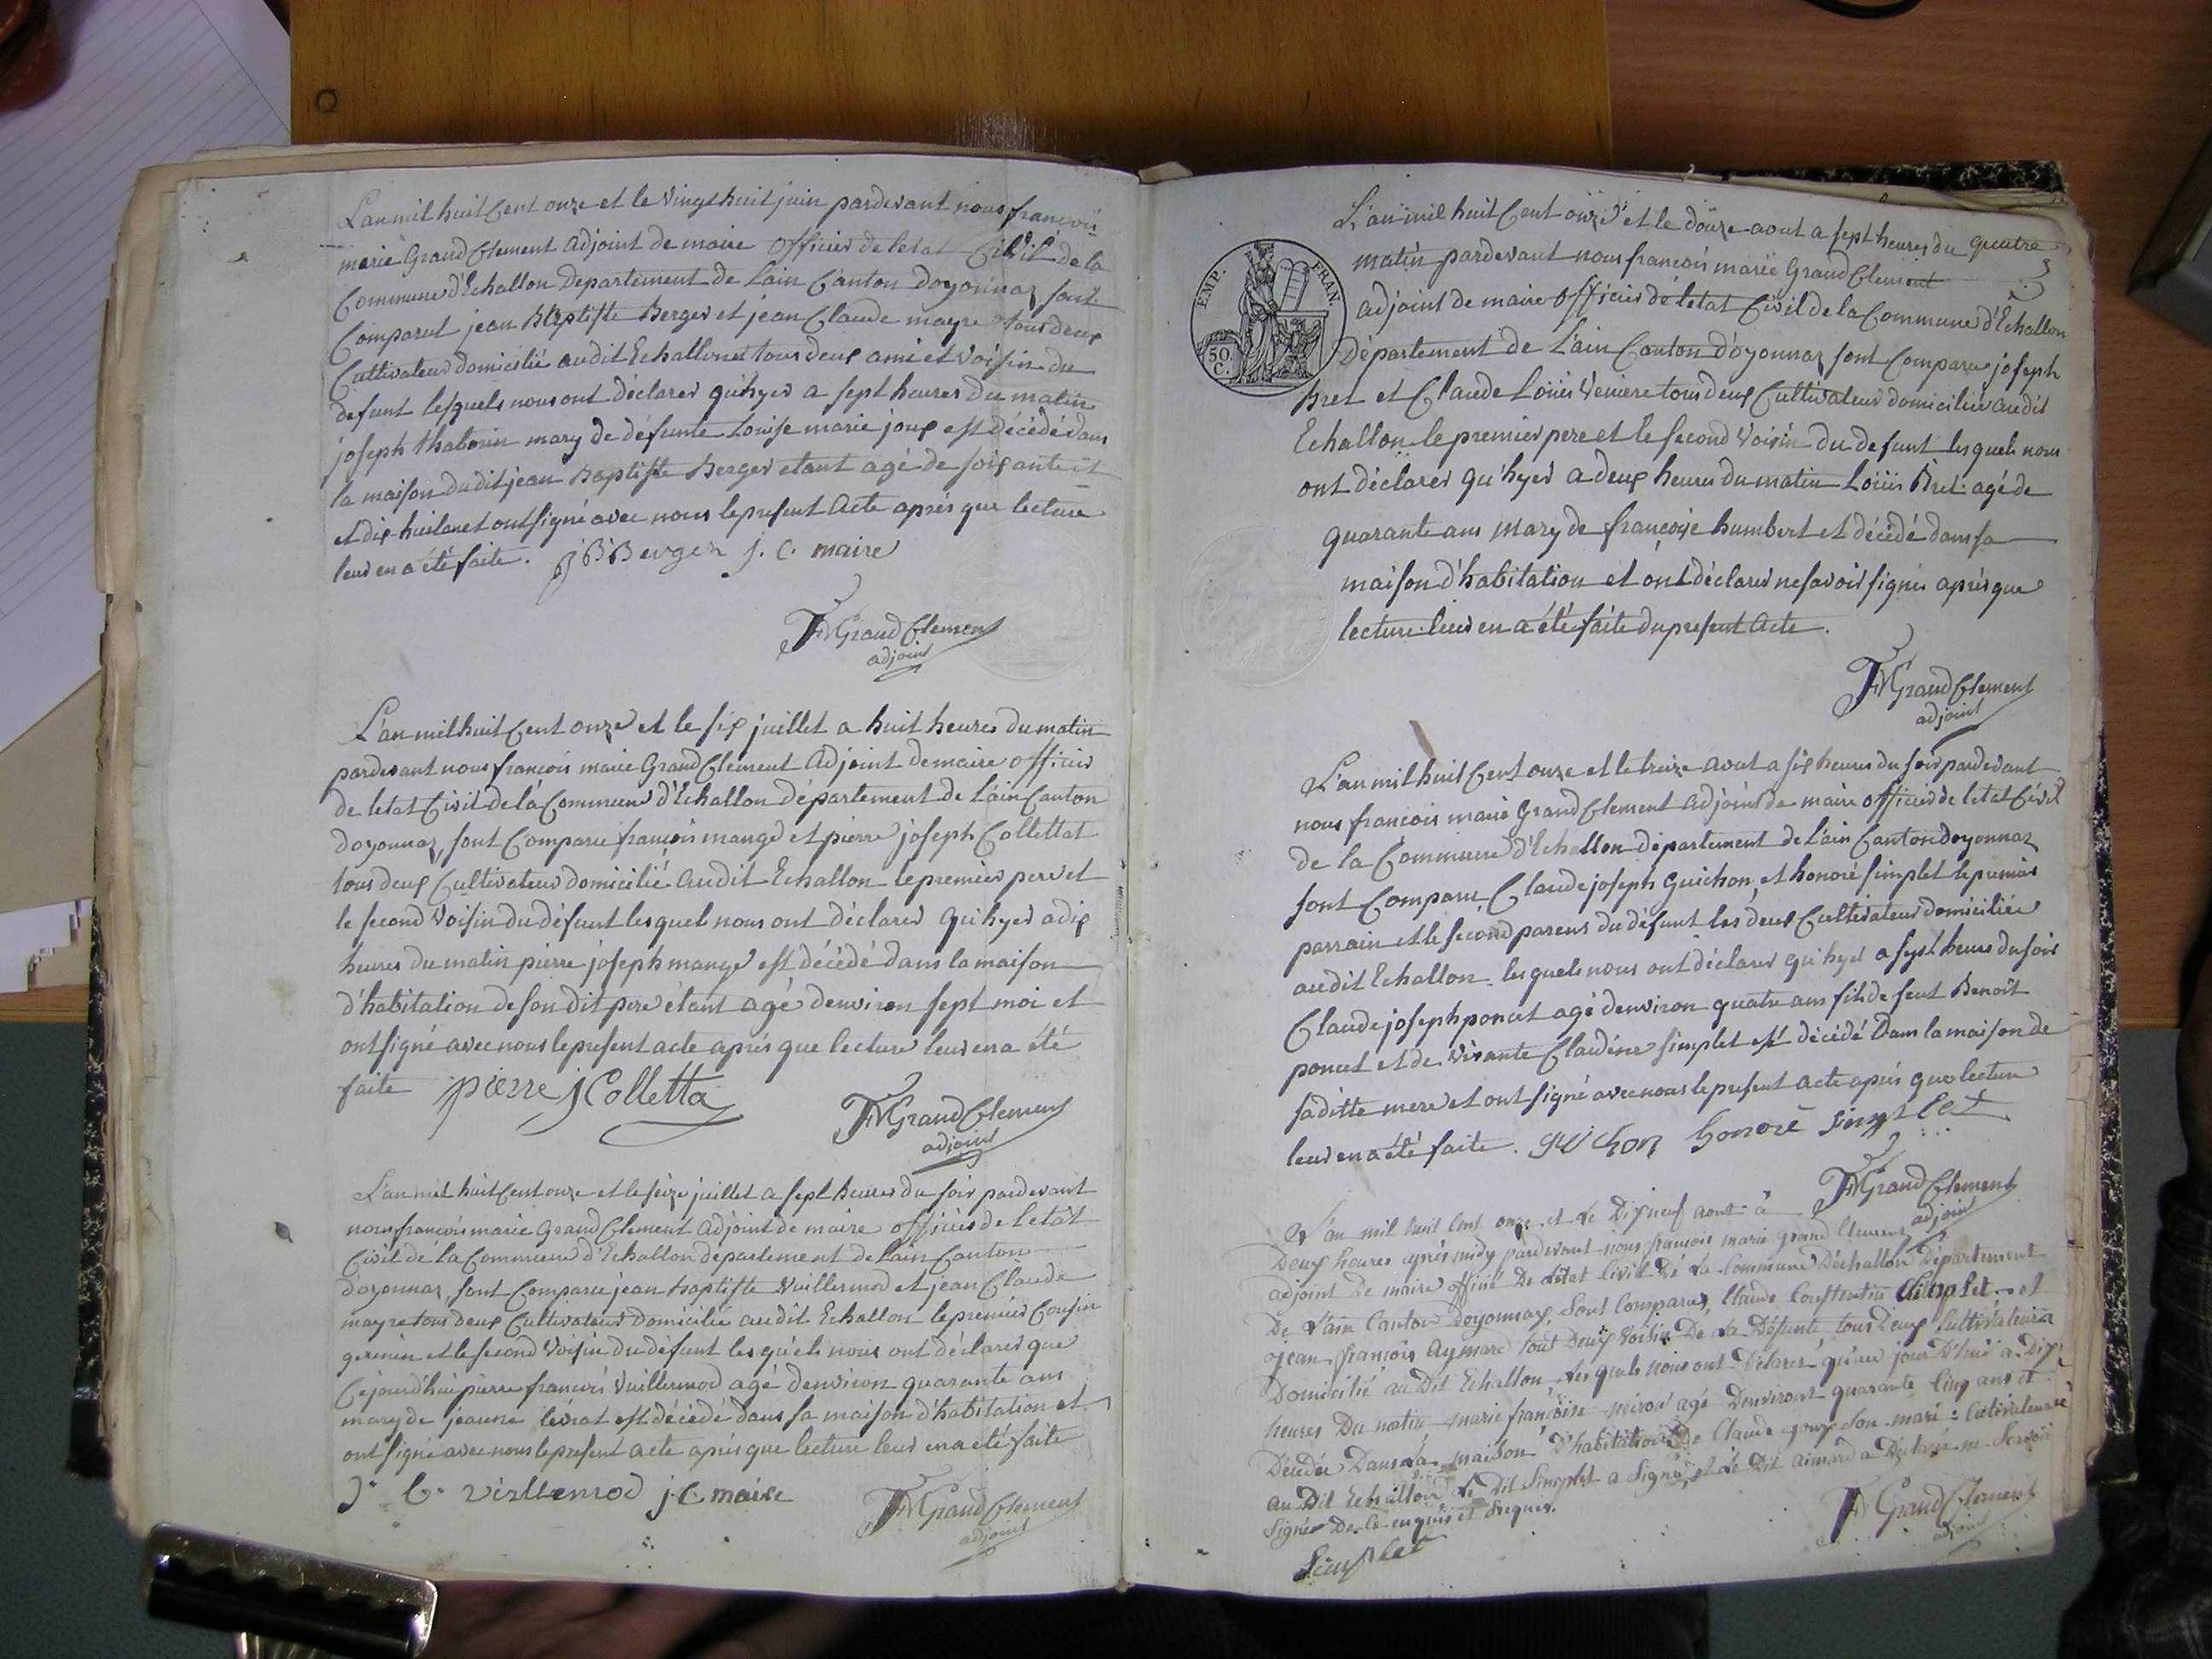 L'an mil huit Cent onze et le vingt huit juin pardevant nous francois
marie Grand Clement adjoint de maire officier de letat Civil de la
Commune d'Echallon Departement de Lain Canton doyonnaz sont
Comparut jean Baptiste Berger et jean Claude mayre tous deux
Cultivateur domicilié audit Echallon et tous deux ami et voisin du
defunt lesquels nous ont déclarer qu'hyer a sept heures du matin
joseph thaborin mary de défunte Louise marie joux est décédé dans
la maison dudit jean Baptiste Berger etant agé de soixante
et dix huit ans et ont signé avec nous le present acte aprés que lecture
leur en a été faite. J B Berger J. C. maire
FM Grand Clement
adjoint
L'an mil huit Cent onze et le six juillet a huit heures du matin
pardevant nous francois marie Grand Clement adjoint de maire officier
de letat Civil de la Commune d'Echallon département de Lain Canton
doyonnaz, sont Comparu francois mange et pierre joseph Collettat
tous deux Cultivateur domicilié audit Echallon le premier pere et
le second voisin du défunt lesquel nous ont déclarer qu'hyer a dix
heures du matin pierre joseph mange est décédé dans la maison
d'habitation de son dit pere étant agé denviron sept moi et
ont signé avec nous le present acte aprés que lecture leur en a été
faite pierre J Colletta
FM Grand Clement
adjoint
L'an mil huit Cent onze et le seize juillet a sept heures du soir pardevant
nous francois marie Grand Clement adjoint de maire officier de letat
Civil de la Commune d'Echallon département de Lain Canton
d'oyonnaz, sont Comparu jean baptiste Vuillermod et jean Claude
mayre tous deux Cultivateur domicilié audit Echallon le premier Cousin
germin et le second voisin du défunt lesquels nous ont déclarer que
Cejourd'hui pierre francois Vuillermod agé denviron quarante ans
mary de jeanne levrat est décédé dans sa maison d'habitation et
ont signé avec nous le present acte aprés que lecture leur en a été faite
J. b. viellermod j C maire
FM Grand Clement
adjoint
L'an mil huit Cent onze et le douze aout a sept heures du quatre
matin pardevant nous francois marie Grand Clement
adjoint de maire officier de letat Civil de la Commune d'Echallon
Département de L'ain Canton d'oyonnaz sont Comparu joseph
Bret et Claude Louis Veuiere tous deux Cultivateur domicilié audit
Echallon le premier pere et le second voisin du defunt lesquels nous
ont déclarer qu'hyer a deux heures du matin Loüis Bret agé de
quarante ans mary de françoise humbert et décédé dans sa
maison d'habitation et ont déclarer ne savoir signer aprés que
lecture leur en a été faite du present acte.
EMP. FRAN.
50.
C.
FM Grand Clement
adjoint
L'an mil huit Cent onze et le treize aout a six heures du soir pardevant
nous francois marie Grand Clement adjoint de maire officier de letat Civil
de la Commune d'Echallon département de L'ain Canton doyonnaz
sont Comparu Claude joseph Guichon, et honoré simplet le premier
parrain et le second parens du défunt les deux Cultivateur domicilié
audit Echallon lesquels nous ont déclarer qu'hyer a sept heures du soir
Claude joseph poncet agé denviron quatre ans fils de feut Benoit
poncet et de vivante Claudine simplet est décédé Dans la maison de
saditte mere et ont signé avec nous le present acte aprés que lecture
leur en a été faite. guichon honoré simplet
FM Grand Clement
adjoint
L'an mil huit Cent onze et le Dix neuf aout a
Deux heures aprés midy pardevant nous françois marie grand Clement
adjoint De maire officié De létat Civil De la Commune Déchallon Département
De l'ain Canton Doyonnax, Sont Comparus, Claude Simplet et
jean françois Aymard tout Deux voisin De la Défunte tous Deux Cultivateurs
Domicilié au Dit Echallon, lesquels nous ont Déclarer qu'au jour D'huï a Dix
heures Du matin marie françoise agé Denviront quarante Cinq ans et
Décédée Dans la maison D'habitation De Claude joux Son mari Cultivateur
au Dit Echallon le Dit Simplet a Signé, et le Dit aimard a Déclaré ne Scavoir
Signer De Ce enquis et Requis.
Simplet
FM Grand Clement
adjoint